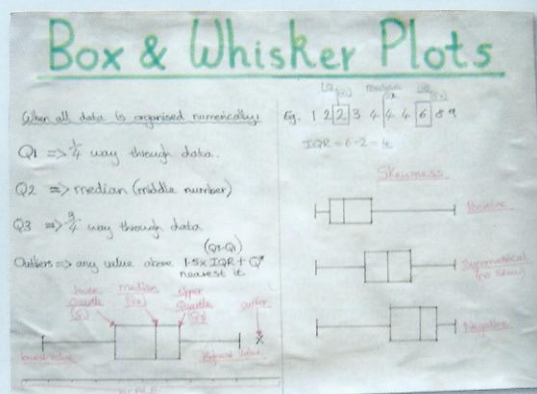 Box & Whisker Plots
When all data is organised numerically:
Q1 => 1/4 way through data.
Q2 => median (middle number)
Q3 => 3/4 way through data
(Q3-Q1)
Outliers => any value above 1.5 x IQR +
nearest it
lower quartile (Q1)
median (Q2)
upper quartile (Q3)
outlier
lowest value
highest value
LQ (Q1)
median
UQ (Q3)
Eg. 1 2 2 3 4 4 4 6 8 9
IQR = 6-2 = 4
Skewness
Positive
Symmetrical
(no skew)
Negative